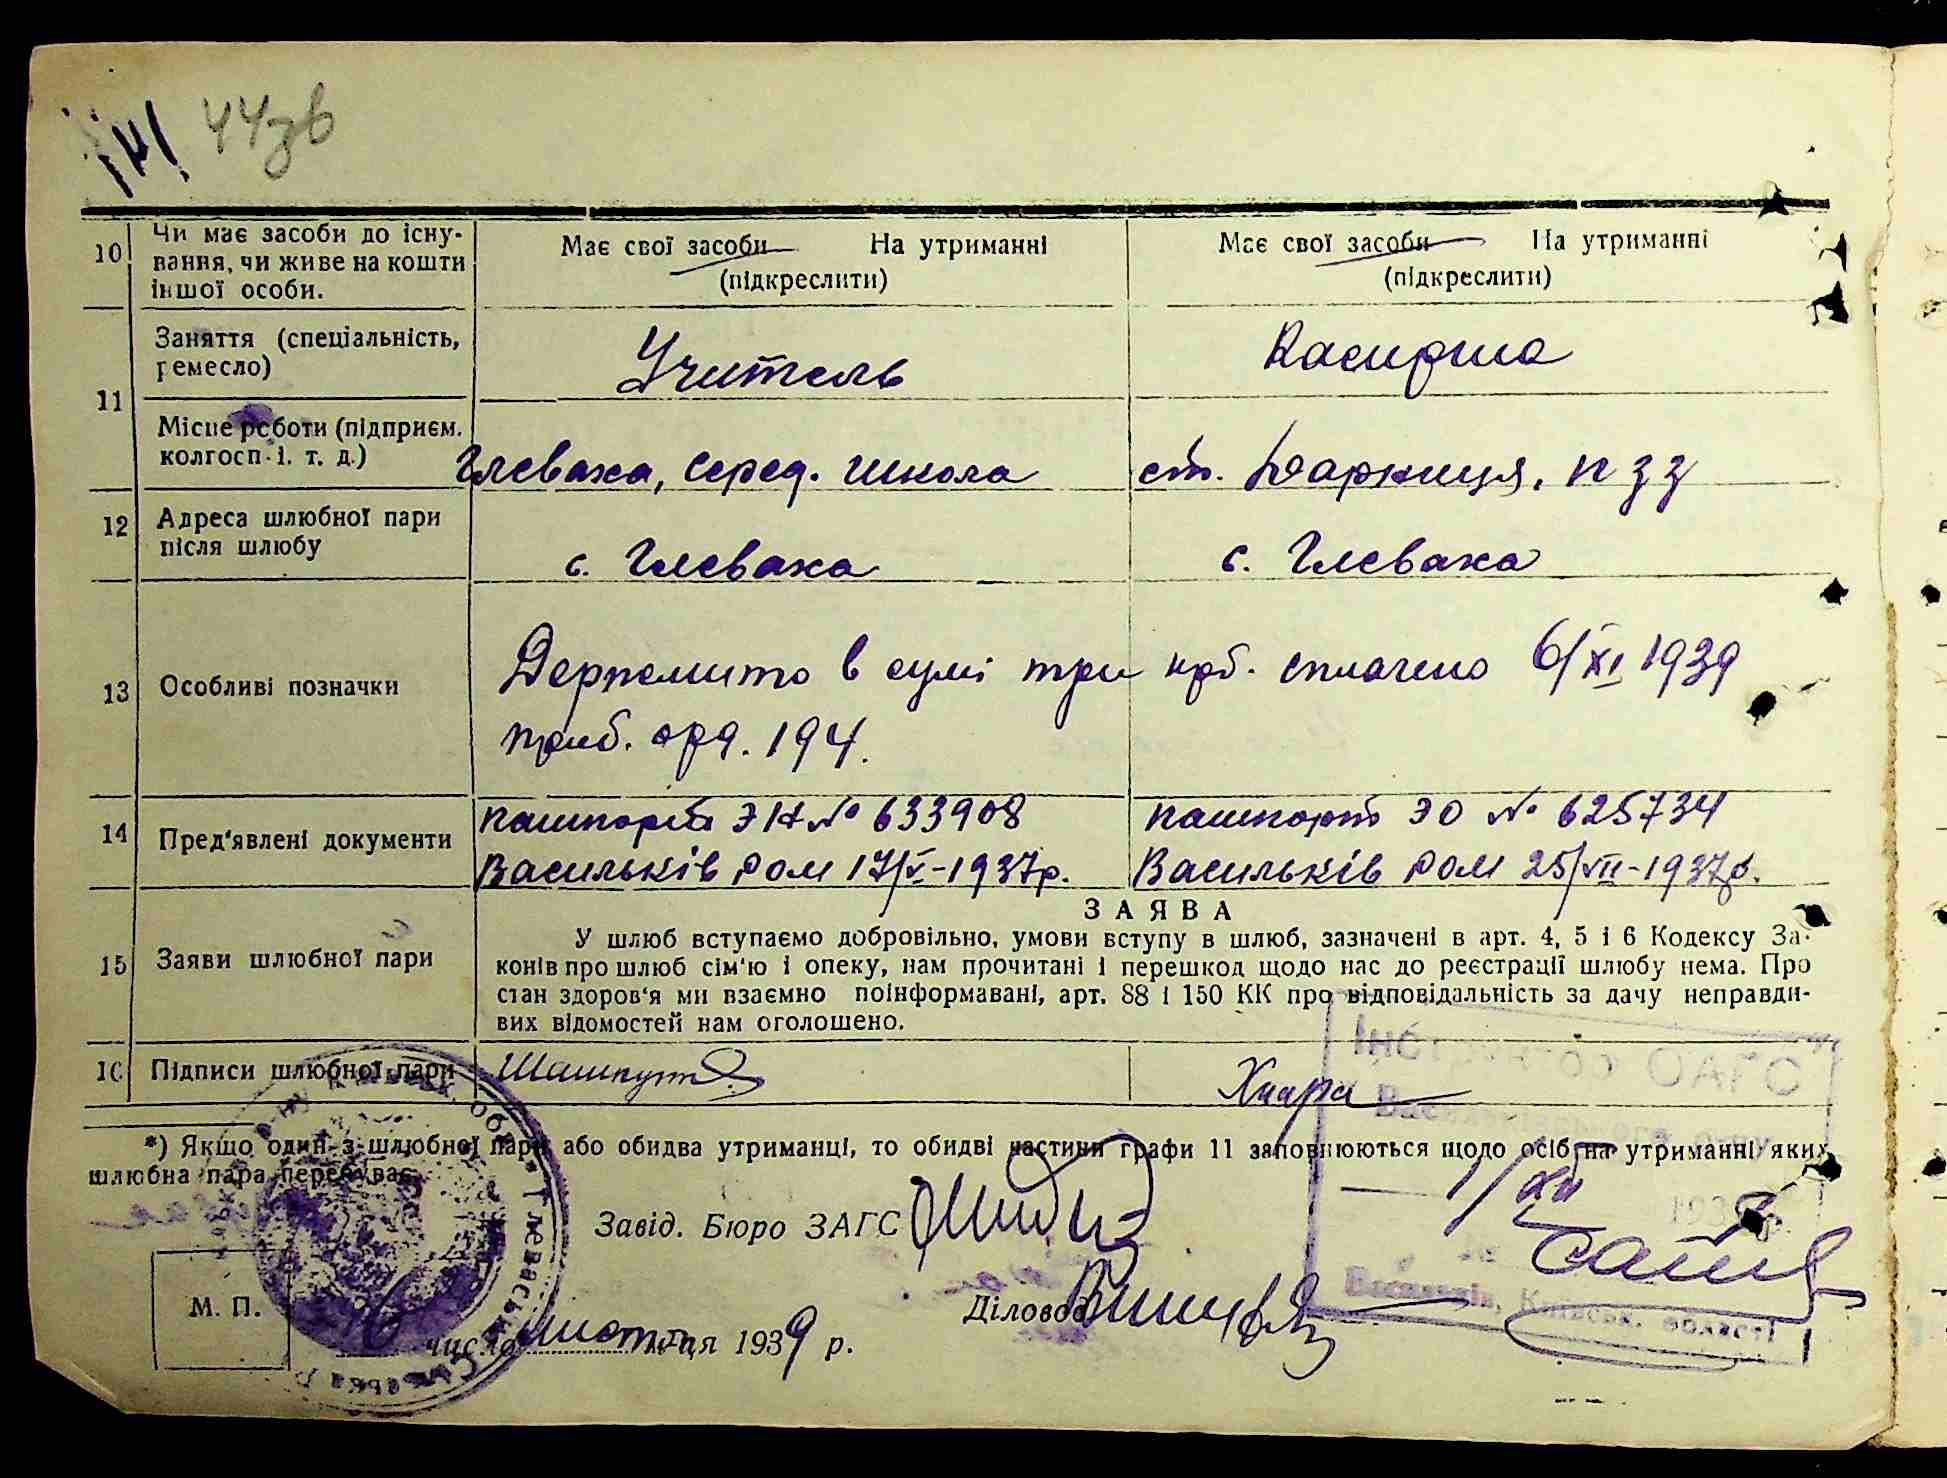 44зв
10
Чи має засоби до існу-
вання, чи живе на кошти
іншої особи.
Має свої засоби На утриманні
(підкреслити)
Має свої засоби На утриманні
(підкреслити)
11
Заняття (спеціальність,
ремесло)
Учитель
Касирша
Місце роботи (підприєм.
колгосп і. т. д.)
Глеваха, серед. школа
ст. Дарниця, п 33
12
Адреса шлюбної пари
після шлюбу
с. Глеваха
с. Глеваха
13
Особливі позначки
Держмито в сумі три крб. сплачено 6/XI 1939
приб. орд. 194.
14
Пред'явлені документи
пашпорта ЭН № 633908
Васильків РОМ 17/V-1937р.
пашпорт ЭО № 625734
Васильків РОМ 25/VII-1937р.
15
Заяви шлюбної пари
ЗАЯВА
У шлюб вступаємо добровільно, умови вступу в шлюб, зазначені в арт. 4, 5 і 6 Кодексу За-
конів про шлюб сім'ю і опеку, нам прочитані і перешкод щодо нас до реєстрації шлюбу нема. Про
стан здоров'я ми взаємно поінформавані, арт. 88 і 150 КК про відповідальність за дачу неправди-
вих відомостей нам оголошено.
16
Підписи шлюбної пари
*) Якщо один з шлюбної пари або обидва утриманці, то обидві частини графи 11 заповнюються щодо осіб на утриманні яких
шлюбна пара перебуває.
Інспектор ОАГС
1/XII
193
Васильків, Київськ. області
Завід. Бюро ЗАГС
Діловод
М. П.
число листопця 1939 р.